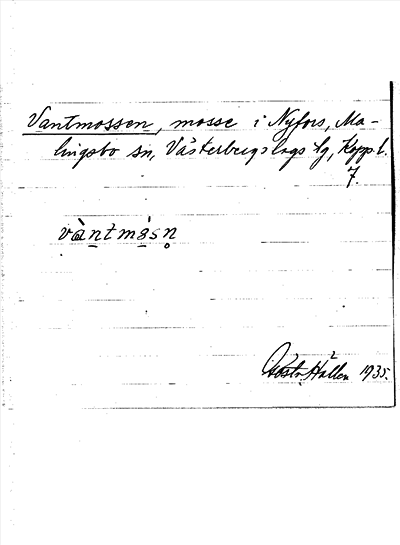 Vantmossen, mosse i Nyfors, Ma-
lingsbo sn, Västerbergslags tg, Kopp. l.
7.
vàntmòsn̥
Gösta Hallén 1935.